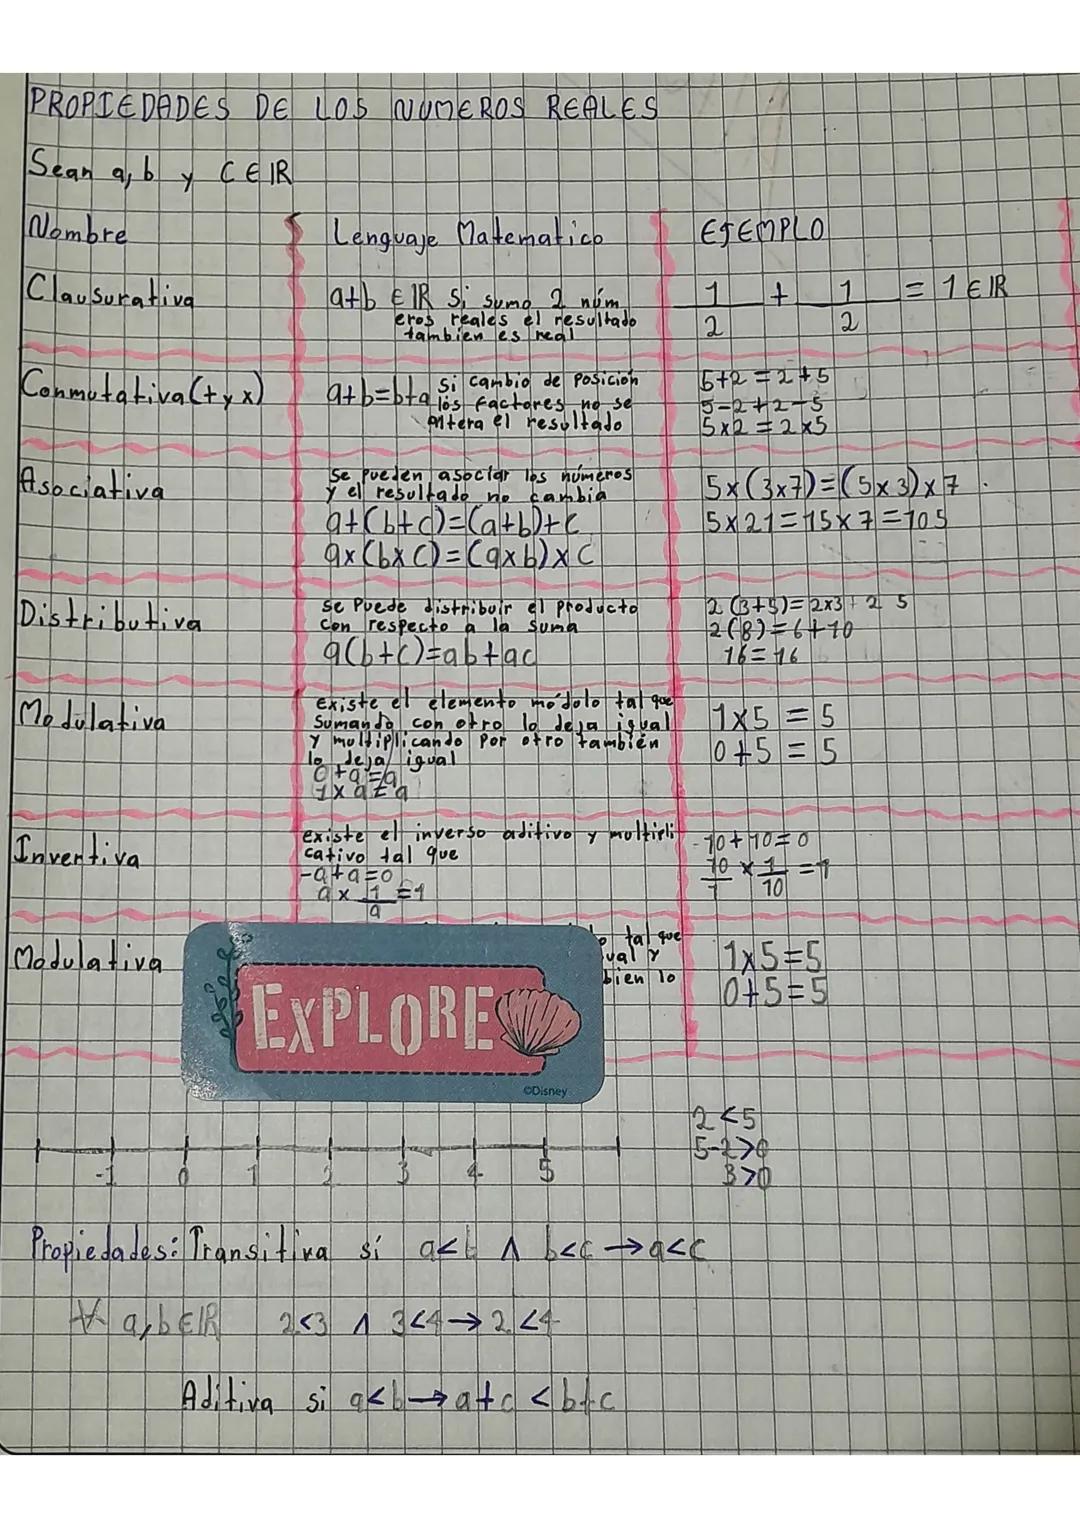 PROPIEDADES DE LOS NUMEROS REALES
Sean a, b y C ∈ IR
Nombre Lenguaje Matematico EJEMPLO
Clausurativa a+b ∈ IR Si sumo 2 núm
eros reales el resultado
tambien es real
1/2 + 1/2 = 1 ∈ IR
Conmutativa (+ y x) a+b=b+a Si cambio de Posición
los factores no se
altera el resultado
5+2=2+5
5-2+2-5
5x2=2x5
Asociativa Se Pueden asociar los números
y el resultado no cambia
a+(b+c)=(a+b)+c
ax(bxc)=(axb)xC
5x(3x7)=(5x3)x7.
5x21=15x7=105
Distributiva Se Puede distribuir el Producto
con respecto a la suma
a(b+c)=ab+ac
2(3+5)=2x3+2 5
2(8)=6+10
16=16
Modulativa existe el elemento módolo tal que
Sumando con otro lo deja igual
y multiplicando Por otro también
lo deja igual
0+a=a
1xa=a
1x5=5
0+5=5
Inventiva existe el inverso aditivo y multipli
cativo tal que
-a+a=0
a x 1/a =1
-10+10=0
10/1 x 1/10 =1
Modulativa
lo tal que
ual y
bien lo
1x5=5
0+5=5
EXPLORE
©Disney
2<5
5-2>0
3>0
-1 0 1 2 3 4 5
Propiedades: Transitiva si a<b ∧ b<c → a<c
∀ a,b ∈ IR 2<3 ∧ 3<4 → 2<4
Aditiva si a<b → a+c < b+c